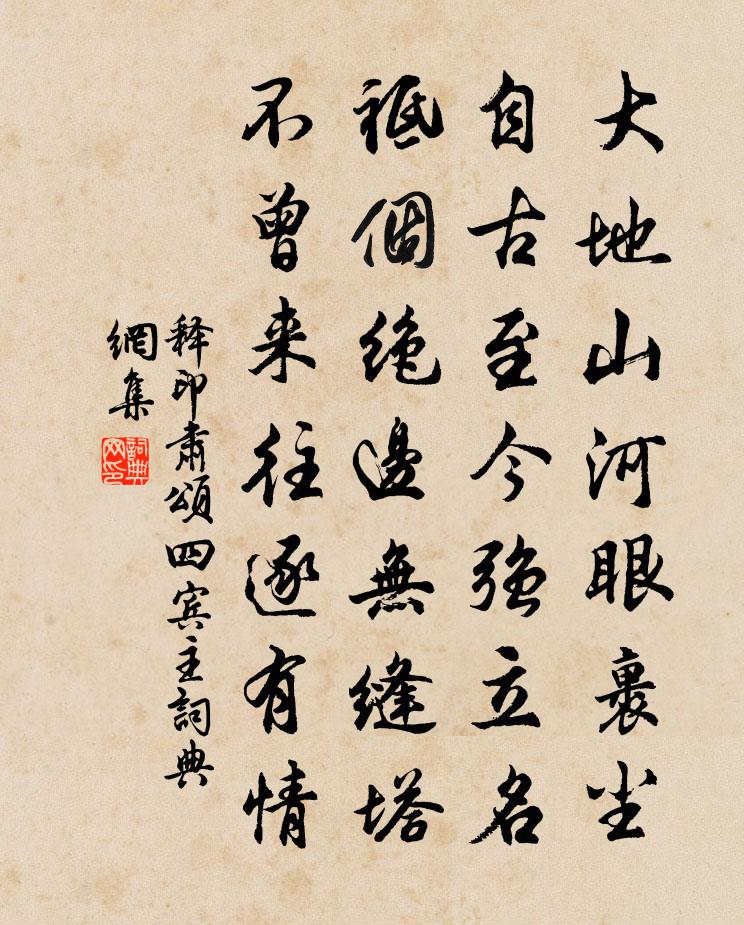 大地山河眼裏尘
自古至今强立名
祗個絶邊無縫塔
不曾来往逐有情
释印肃頌四宾主詞典
網集
詞典
网印